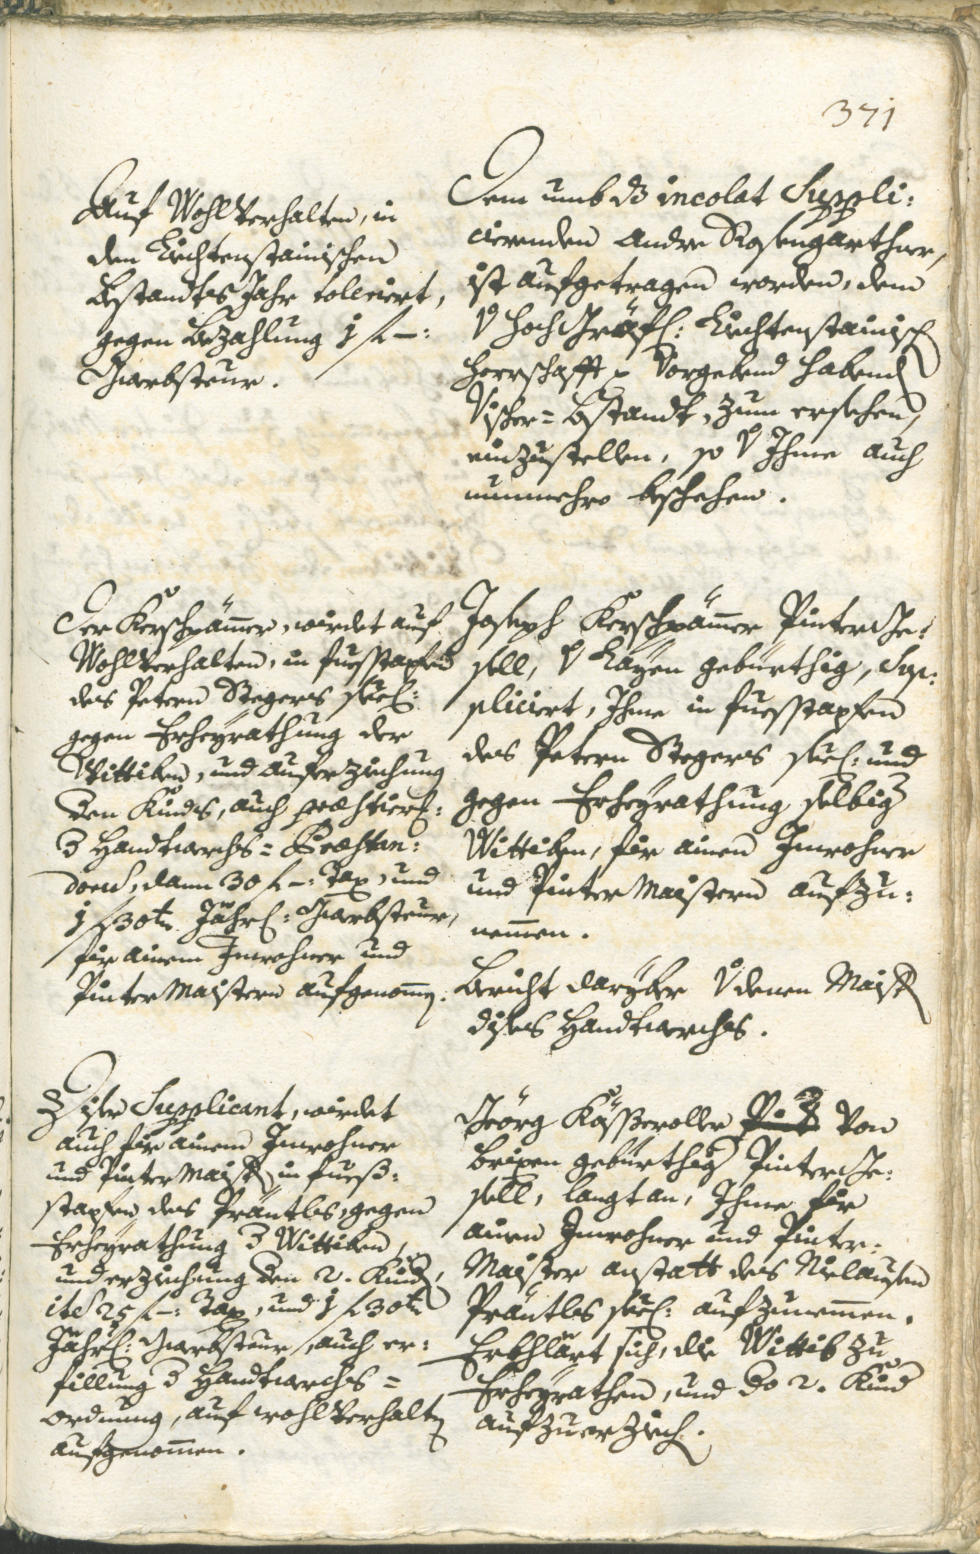 371
Auf Wohlverhalten, in
den Liechtenstainischen
Bestandts Jahr tolleriert,
gegen Bezahlung 1 f —:
Gwerbsteur.
Dem umb dz incolat Suppli:
cierenden Andre Rosengarthner,
ist aufgetragen worden, dem
v hoch Gräfl: Liechtenstainisch
Herrschafft Vorgebend habend
Vischer= Bstandt, zum ersehen,
einzustellen, so v Ihme auch
nunmehro beschehen.
Der Kerschpämer, wirdet auf
Wohlverhalten, in fuesstapfen
des Petern Stegers seel:
gegen Erheyrathung der
Wittiben, und auferziehung
den Kinds, auch praestier:
d Handtwerchs= Praestan:
doru, dann 30 f —: Tax, und
1 f 30 kr Jährl: Gwerbsteur,
für ainem Inwohner und
Pinter Maistern aufgenomen.
Joseph Kerschpämer Pinter Ge:
sell, v Layen gebürthig, Sup:
pliciert, Ihme in fuesstapfen
des Petern Stegers seel: und
gegen Erheyrathung selbig
Wittiben, für ainen Inwohner
und Pinter Maistern aufzu:
nemmen.
Bericht darüber v denen Maistr
dises Handtwerchs.
Diser Supplicant, wirdet
auch für ainem Inwohner
und Pinter Maistr, in fueß:
stapfen des Präntls, gegen
Erheyrathung d Wittiben,
und erziehung den 2. Kindr,
item 25 f —: Tax, und 1 f 30 kr
Jährl: Gwerbsteur, auch er:
fillung d Handtwerchs=
ordnung, auf wohlverhalten
aufgenommen.
Geörg Kösseroller Von
Brixen gebürthig Pinter Ge:
sell, langt an, Ihme für
ainen Inwohner und Pinter=
Maister anstatt des Niclausen
Präntls seel: aufzunemmen.
Erkhlärt sich, die Wittib zu
Erheyrathen, und do 2. Kind
aufzuerziech.